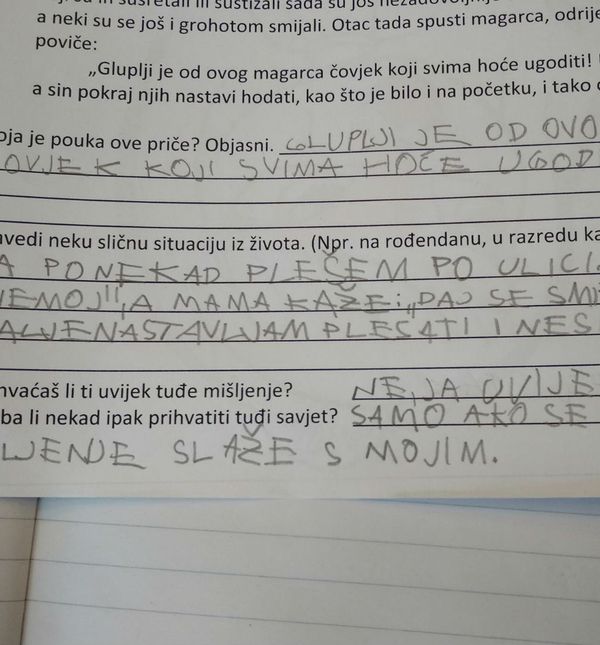 sustizali sada su još
a neki su se još i grohotom smijali. Otac tada spusti magarca, odrije
poviče:
„Gluplji je od ovog magarca čovjek koji svima hoće ugoditi!
a sin pokraj njih nastavi hodati, kao što je bilo i na početku, i tako
oja je pouka ove priče? Objasni. GLUPLJI JE OD OVO
OVJEK KOJI SVIMA HOĆE UGOD
avedi neku sličnu situaciju iz života. (Npr. na rođendanu, u razredu ka
A PONEKAD PLEŠEM PO ULICI.
EMOJ", A MAMA KAŽE: „DAJ SE SMI
ALJE NASTAVLJAM PLESATI I NE S
hvaćaš li ti uvijek tuđe mišljenje? NE, JA UVIJE
ba li nekad ipak prihvatiti tuđi savjet? SAMO AKO SE
LJENJE SLAŽE S MOJIM.